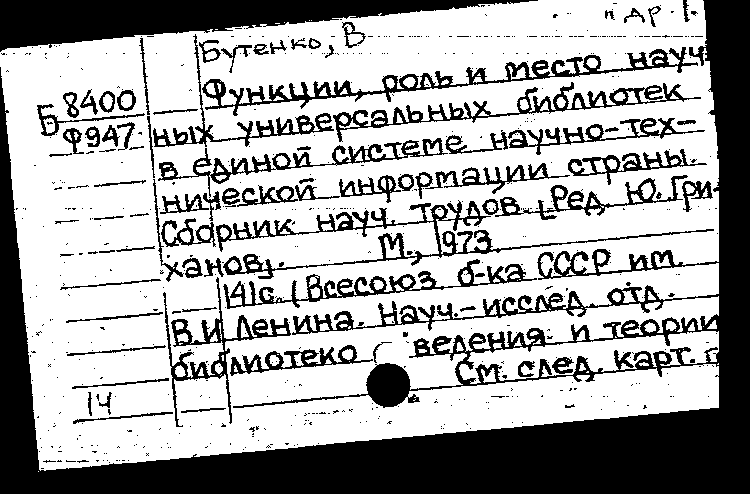 и др.
Бутенко, В
Б 8400
Ф947
Функции, роль и место науч
ных универсальных библиотек
в единой системе научно-тех-
нической информации страны.
Сборник науч. трудов. [Ред. Ю. Гри-
ханов].  М., 1973.
141с. (Всесоюз. б-ка СССР им.
В.И Ленина. Науч.-исслед. отд.
библиотековедения и теории
См. след. карт.
14